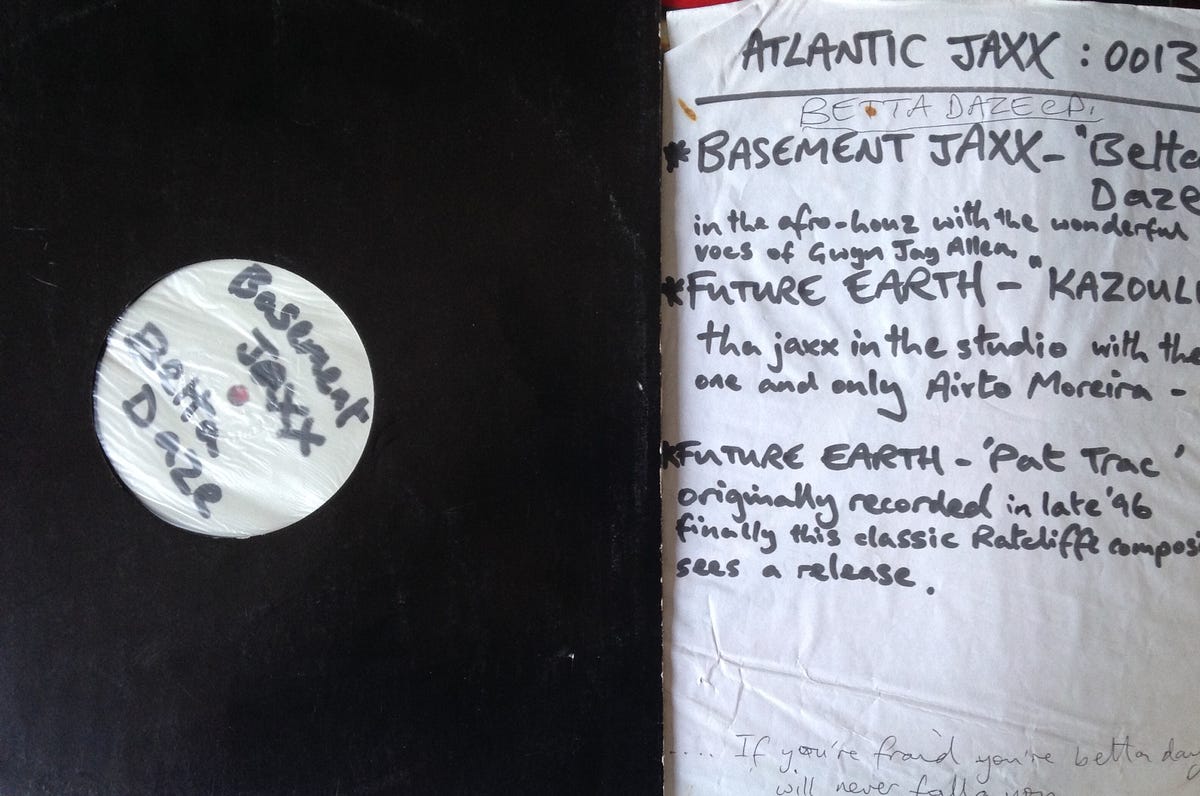 Basement
Jaxx
Betta
Daze
ATLANTIC JAXX : 0013
BETTA DAZE EP.
*BASEMENT JAXX - "Betta
Daze
in the afro-houz with the wonderful
vocs of Gwyn Jay Allen.
*FUTURE EARTH - "KAZOUL
tha jaxx in the studio with the
one and only Airto Moreira -
*FUTURE EARTH - 'Pat Trac'
originally recorded in late '96
finally this classic Ratcliffe composi
sees a release.
.... If you're fraid you're betta day
will never fall a you